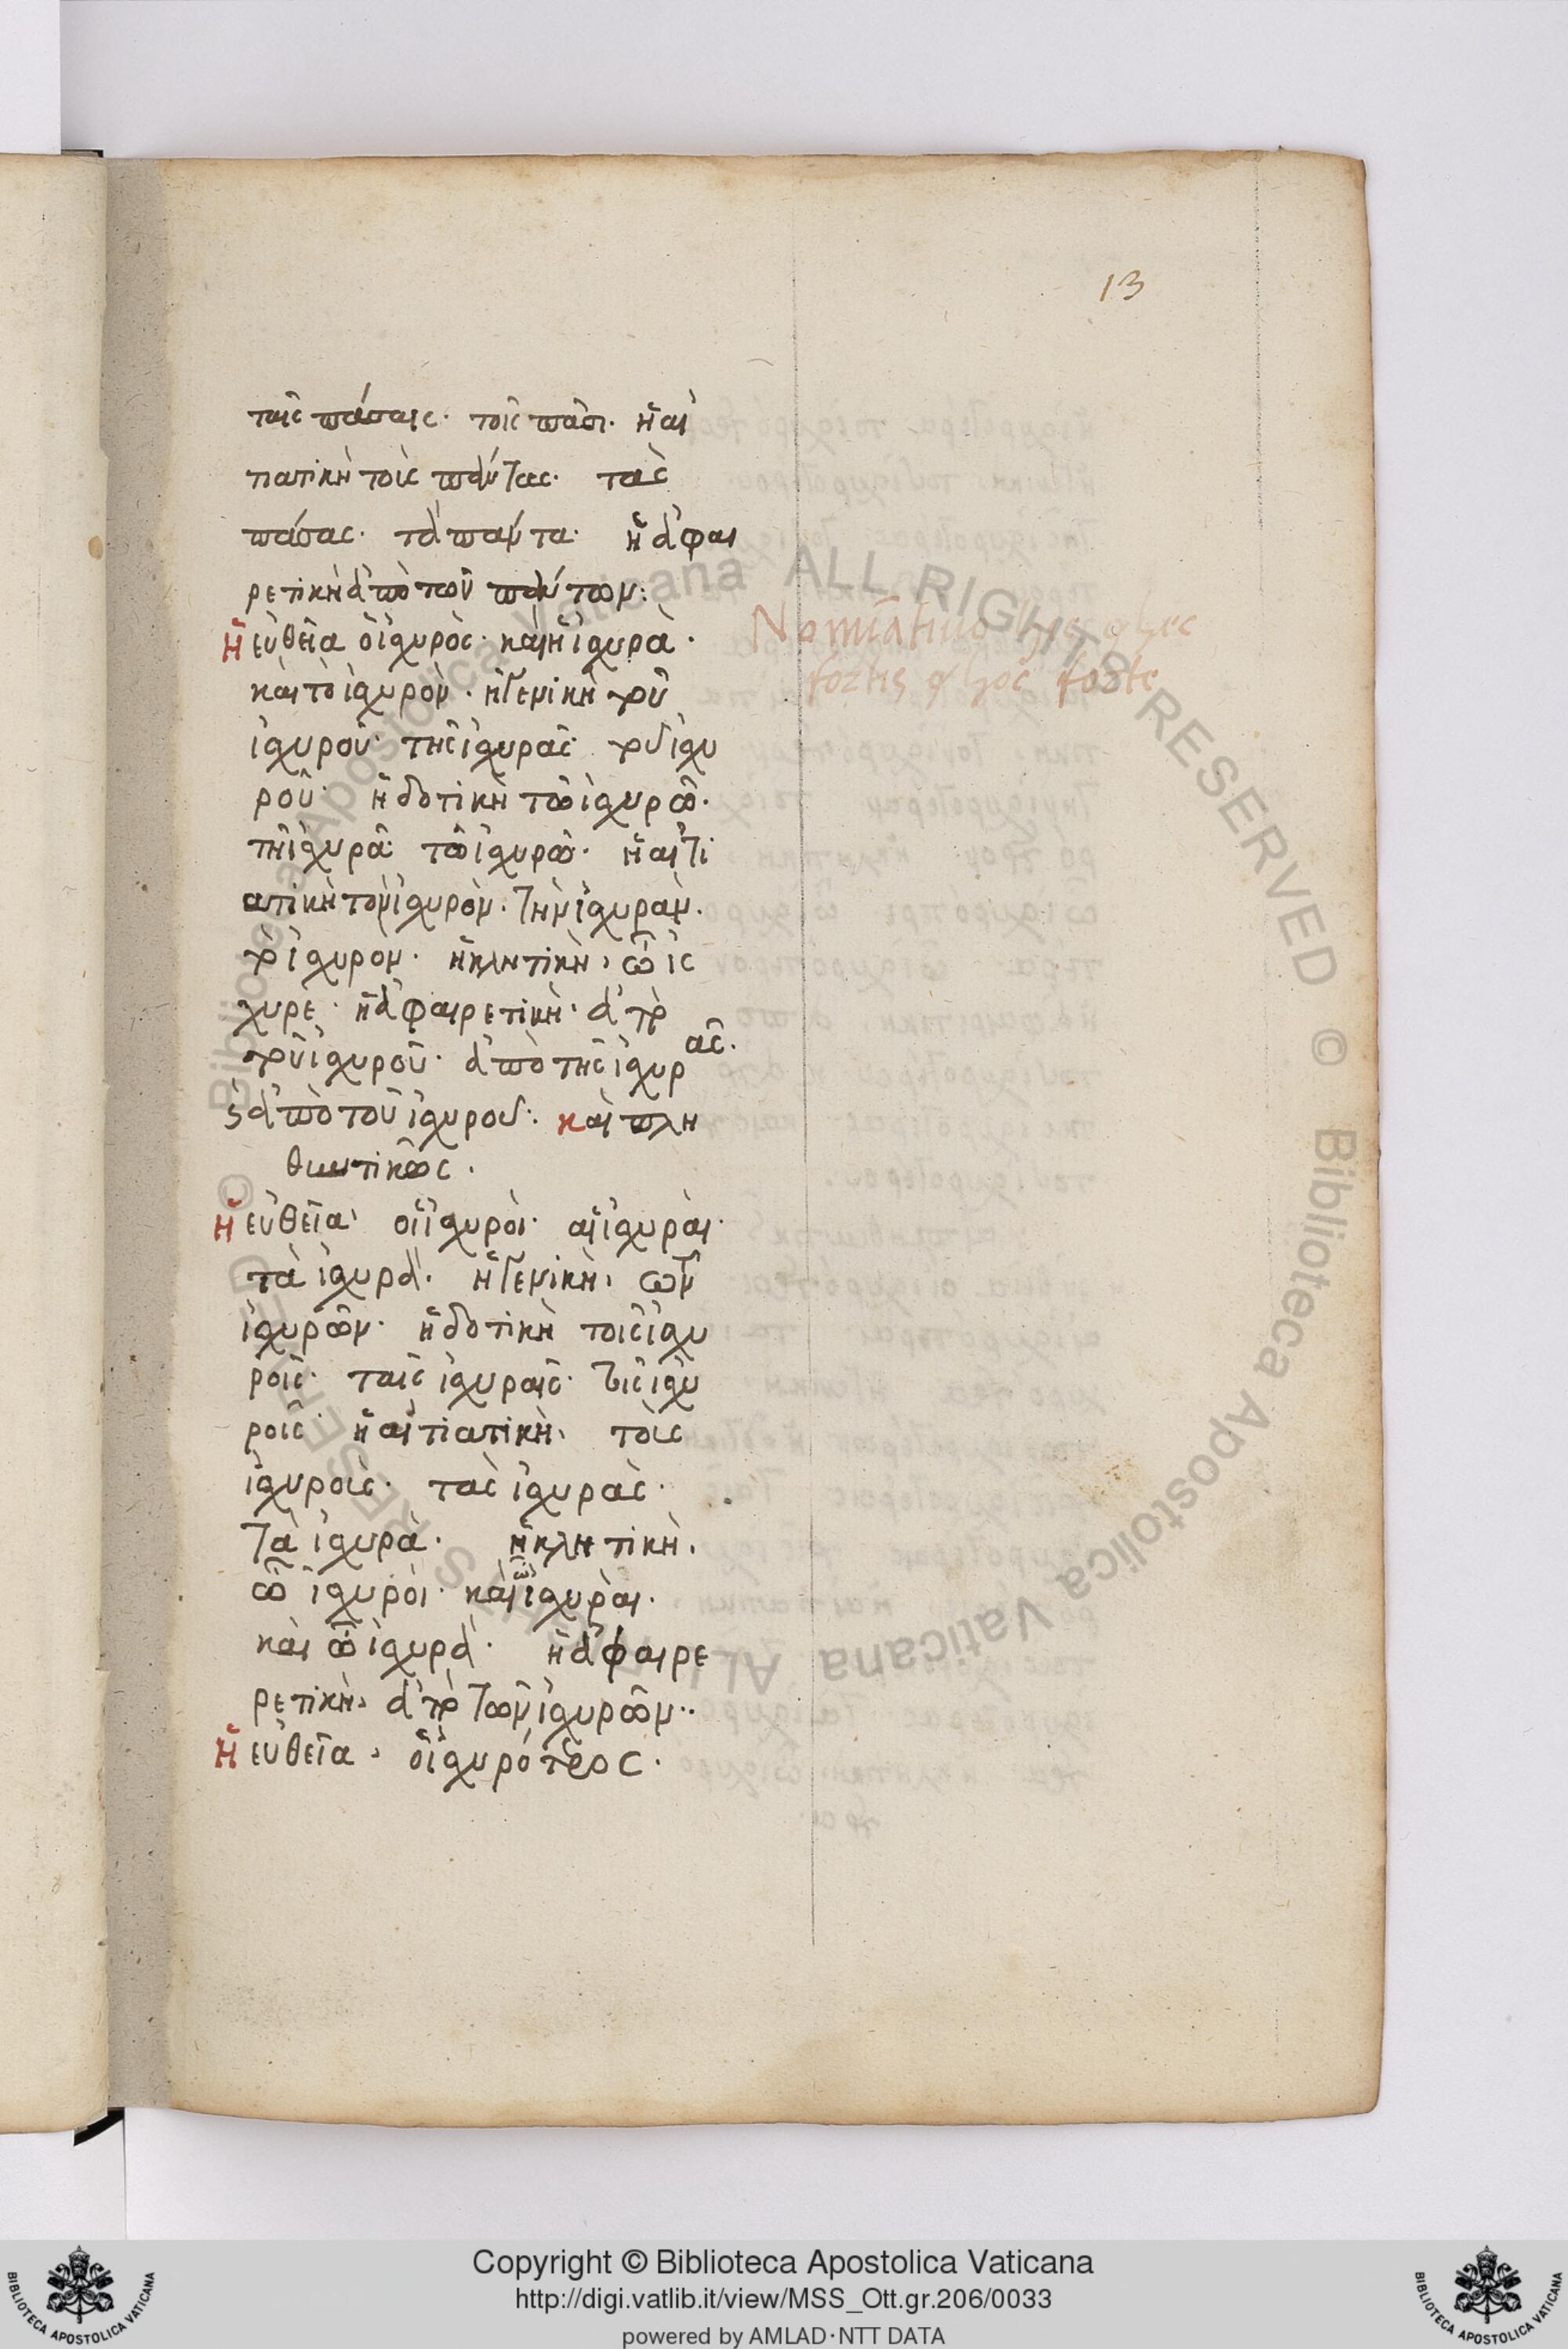 13
ταῖς πάσαις· τοῖς πᾶσι· ἡ αἰ
τιατικὴ τοὺς πάντας· τὰς
πάσας· τὰ πάντα· ἡ ἀφαι
ρετικὴ ἀπὸ τοῦ πάντων:
Ἡ εὐθεῖα ὁ ἰχυρὸς· καὶ ἡ ἰχυρὰ·
καὶ τὸ ἰχυρὸν· ἡ γενικὴ τοῦ
ἰχυροῦ· τῆς ἰχυρᾶς· τοῦ ἰχυ
ροῦ· ἡ δοτικὴ τῶ ἰχυρῶ·
τῆ ἰχυρᾶ· τῶ ἰχυρῶ· ἡ αἰτι
ατικὴ τὸν ἰχυρὸν· τὴν ἰχυρὰν·
τὸ ἰχυρον· ἡ κλητικὴ, ὦ ἰς
χυρὲ· ἡ ἀφαιρετικὴ· ἀπὸ
τοῦ ἰχυροῦ· ἀπὸ τῆς ἰχυρᾶς·
ϛ ἀπὸ τοῦ ἰχυροῦ: καὶ πλη
θυντικῶς·
Ἡ εὐθεῖα, οἱ ἰχυροὶ· αἱ ἰχυραὶ·
τὰ ἰχυρὰ· ἡ γενικὴ, τῶν
ἰχυρῶν· ἡ δοτικὴ τοῖς ἰχυ
ροῖς· ταῖς ἰχυραῖς· τοῖς ἰχυ
ροῖς· ἡ αἰτιατικὴ· τοὺς
ἰχυροὺς· τὰς ἰχυρὰς·
Τὰ ἰχυρὰ· ἡ κλητικὴ·
ὦ ἰχυροὶ· καὶ ὦ ἰχυραὶ·
καὶ ὦ ἰχυρὰ· ἡ ἀφαιρε
ρετικὴ, ἀπὸ τῶν ἰχυρῶν··
Ἡ εὐθεῖα, ὁ ἰχυρότερος·
Nomiãtiuo hic & hec
fortis & hoc forte
Copyright © Biblioteca Apostolica Vaticana
http://digi.vatlib.it/view/MSS_Ott.gr.206/0033
powered by AMLAD·NTT DATA
BIBLIOTECA APOSTOLICA VATICANA
BIBLIOTECA APOSTOLICA VATICANA
© Biblioteca Apostolica Vaticana ALL RIGHTS RESERVED © Biblioteca Apostolica Vaticana ALL RIGHTS RESERVED